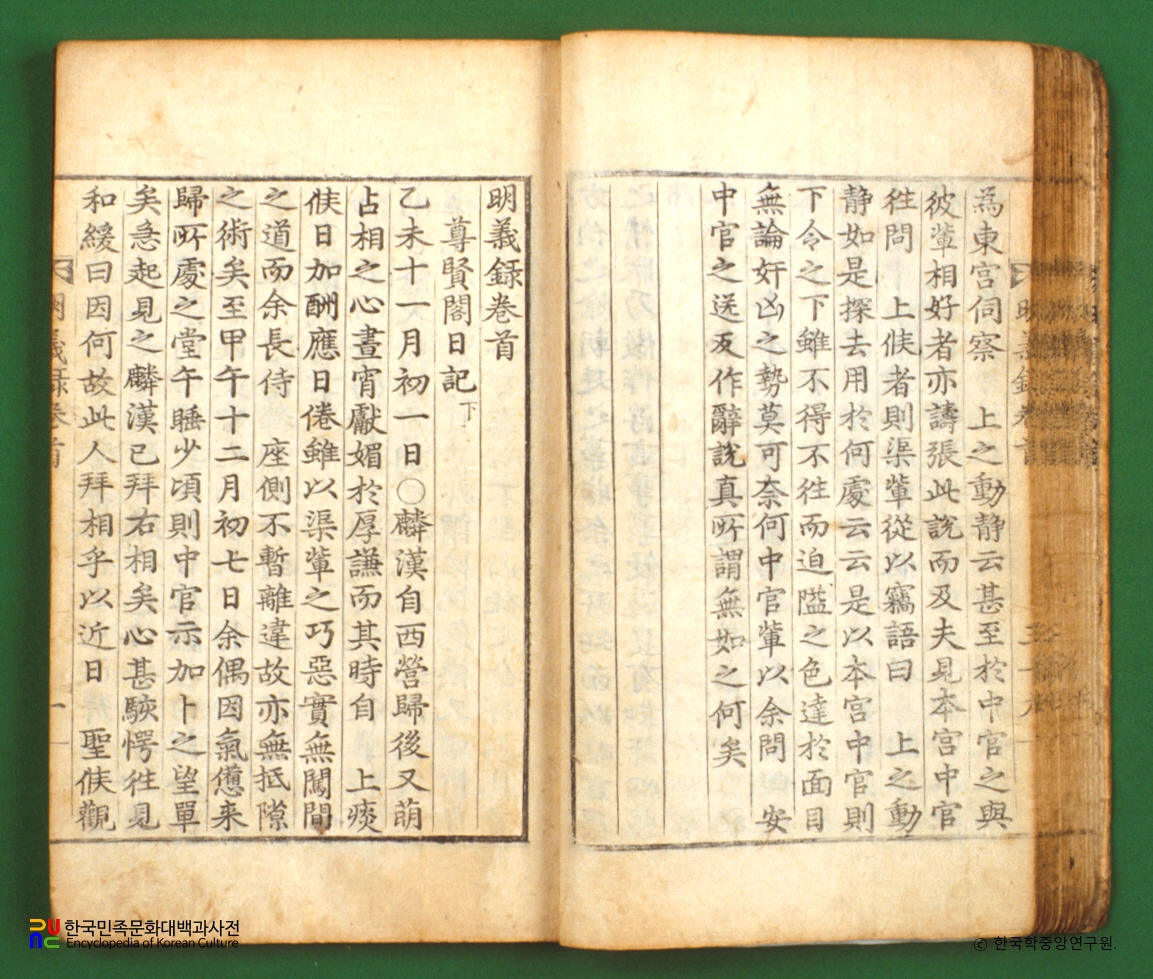 為東宮伺察 上之動静云甚至於中官之與
彼輩相好者亦譸張此說而及夫見本宮中官
徃問 上候者則渠輩從以竊語曰 上之動
静如是探去用於何處云云是以本宮中官則
下令之下雖不得不徃而迫隘之色達於面目
無論奸凶之勢莫可奈何中官輩以余問 安
中官之送反作辭說真所謂無如之何矣
明義録卷首
明義録卷首
尊賢閣日記下
乙未十一月初一日○麟漢自西營歸後又萌
占相之心晝宵獻媚於厚謙而其時自 上痰
候日加酬應日倦雖以渠輩之巧惡實無闖間
之道而余長侍 座側不暫離違故亦無抵隙
之術矣至甲午十二月初七日余偶因氣憊来
歸所處之堂午睡少頃則中官示加卜之望單
矣急起見之麟漢已拜右相矣心甚駭愕徃見
和緩曰因何故此人拜相乎以近日 聖候觀
明義録卷首 一
한국민족문화대백과사전
Encyclopedia of Korean Culture
ⓒ 한국학중앙연구원.